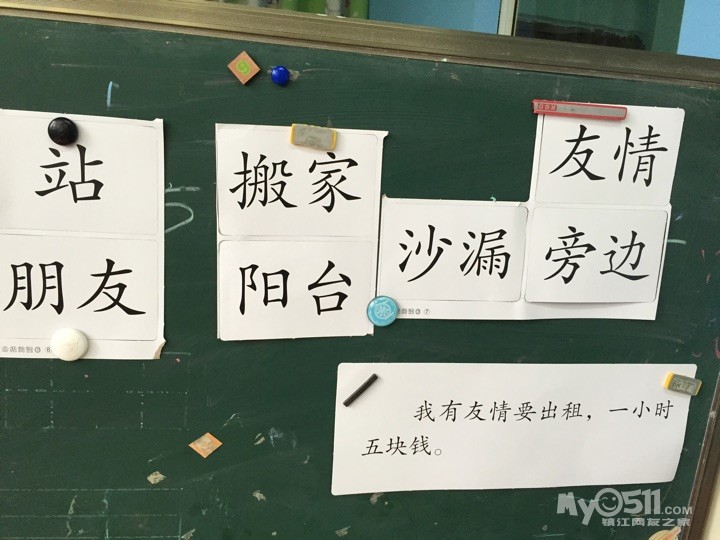 站
朋友
搬家
阳台
沙漏
友情
旁边
我有友情要出租，一小时
五块钱。
My0511.COM
镇江网友之家